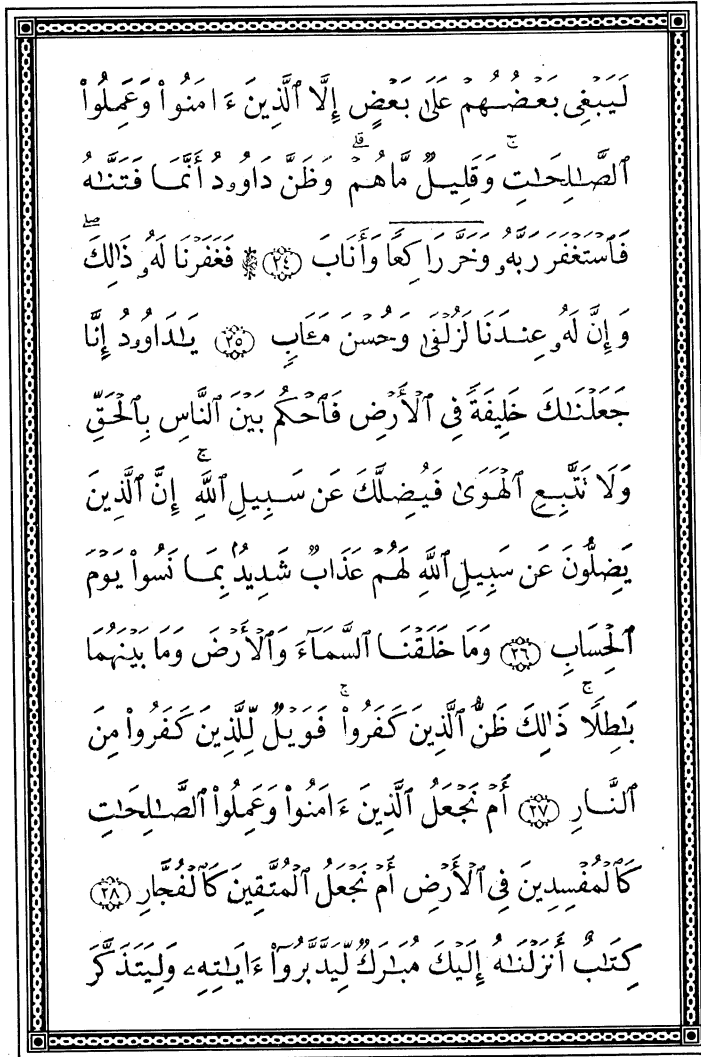 لَيَبْغِى بَعْضُهُمْ عَلَىٰ بَعْضٍ إِلَّا ٱلَّذِينَ ءَامَنُوا۟ وَعَمِلُوا۟
ٱلصَّـٰلِحَـٰتِ وَقَلِيلٌۭ مَّا هُمْ ۗ وَظَنَّ دَاوُۥدُ أَنَّمَا فَتَنَّـٰهُ
فَٱسْتَغْفَرَ رَبَّهُۥ وَخَرَّ رَاكِعًۭا وَأَنَابَ ۩ ﴿٢٤﴾ ۞ فَغَفَرْنَا لَهُۥ ذَٰلِكَ ۖ
وَإِنَّ لَهُۥ عِندَنَا لَزُلْفَىٰ وَحُسْنَ مَـَٔابٍۢ ﴿٢٥﴾ يَـٰدَاوُۥدُ إِنَّا
جَعَلْنَـٰكَ خَلِيفَةًۭ فِى ٱلْأَرْضِ فَٱحْكُم بَيْنَ ٱلنَّاسِ بِٱلْحَقِّ
وَلَا تَتَّبِعِ ٱلْهَوَىٰ فَيُضِلَّكَ عَن سَبِيلِ ٱللَّهِ ۚ إِنَّ ٱلَّذِينَ
يَضِلُّونَ عَن سَبِيلِ ٱللَّهِ لَهُمْ عَذَابٌۭ شَدِيدٌۢ بِمَا نَسُوا۟ يَوْمَ
ٱلْحِسَابِ ﴿٢٦﴾ وَمَا خَلَقْنَا ٱلسَّمَآءَ وَٱلْأَرْضَ وَمَا بَيْنَهُمَا
بَـٰطِلًۭا ۚ ذَٰلِكَ ظَنُّ ٱلَّذِينَ كَفَرُوا۟ ۚ فَوَيْلٌۭ لِّلَّذِينَ كَفَرُوا۟ مِنَ
ٱلنَّارِ ﴿٢٧﴾ أَمْ نَجْعَلُ ٱلَّذِينَ ءَامَنُوا۟ وَعَمِلُوا۟ ٱلصَّـٰلِحَـٰتِ
كَٱلْمُفْسِدِينَ فِى ٱلْأَرْضِ أَمْ نَجْعَلُ ٱلْمُتَّقِينَ كَٱلْفُجَّارِ ﴿٢٨﴾
كِتَـٰبٌ أَنزَلْنَـٰهُ إِلَيْكَ مُبَـٰرَكٌۭ لِّيَدَّبَّرُوٓا۟ ءَايَـٰتِهِۦ وَلِيَتَذَكَّرَ